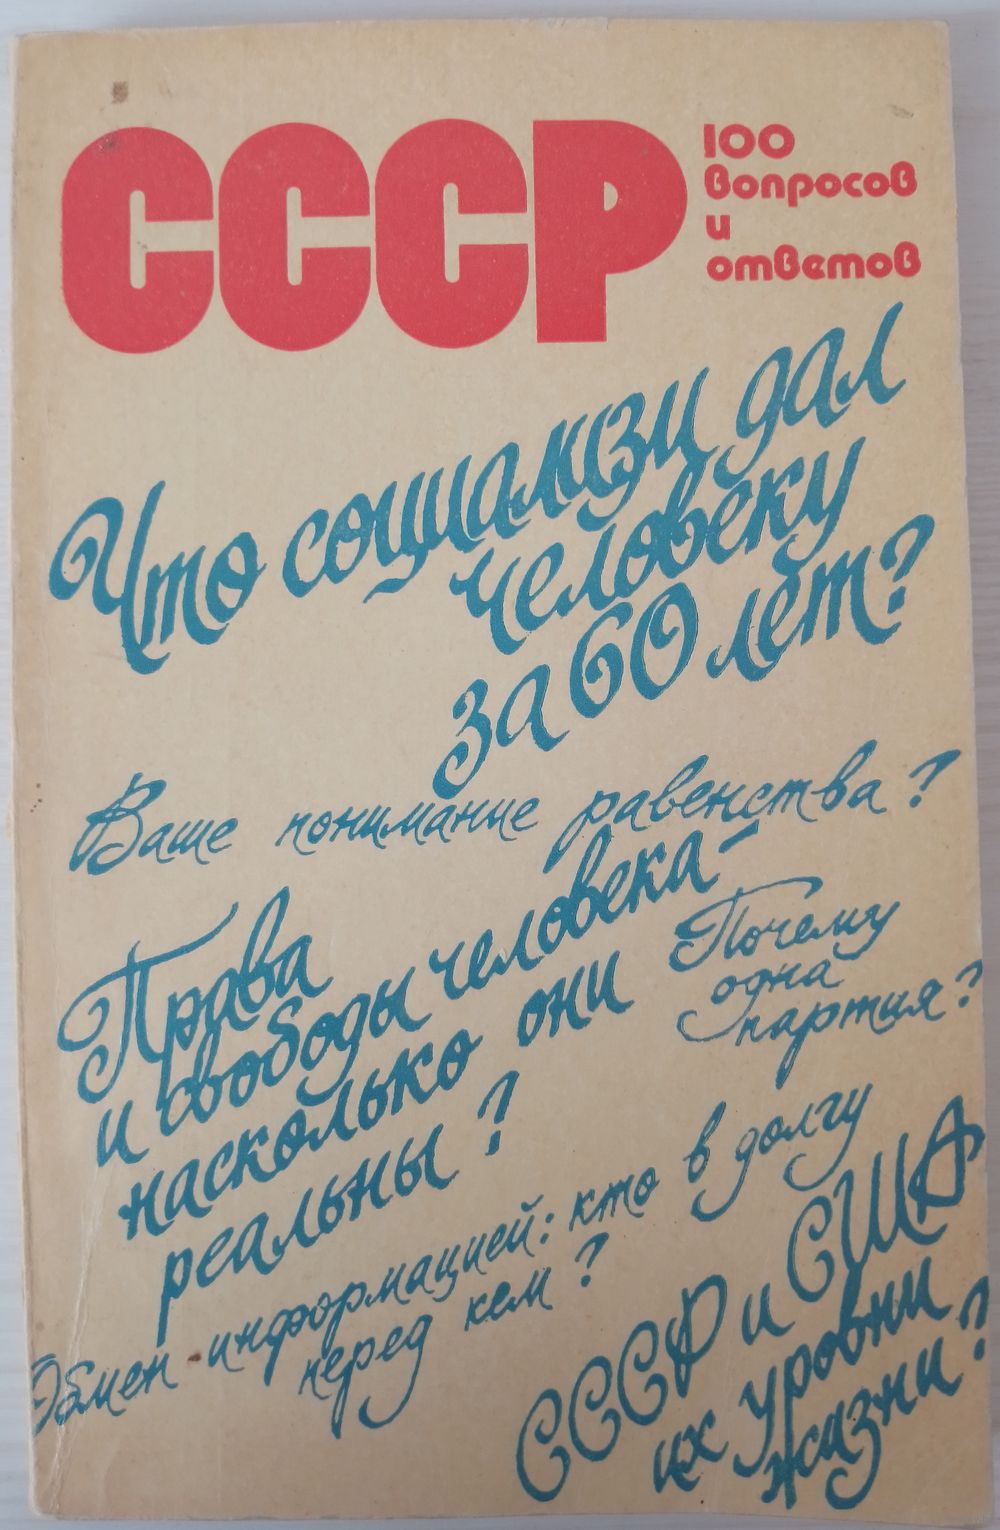 СССР
100
вопросов
и
ответов
Что социализм дал
человеку
за 60 лет?
Ваше понимание равенства?
Права
и свободы человека-
насколько они
реальны?
Почему
одна
партия?
Обмен информацией: кто в долгу
перед кем?
СССР и США
их уровни
жизни?